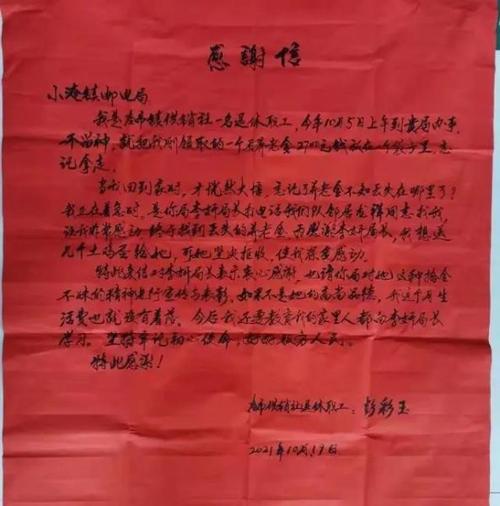 感謝信
小淹镇邮电局
我是 镇供销社一名退休职工，今年10月5日上午到贵局办事，
不留神，就把我刚领取的一个月养老金2700元钱放在一个袋子里，忘
记拿走。
当我回到家时，才恍然大悟，忘记了养老金不知丢失在哪里了？
我正在着急时，是你局李妍局长打电话我们队邻居龙 同志找我，
让我非常感动，终于找到丢失的养老金，为感谢李妍局长，我想送
几斤土鸡蛋给她，可她坚决拒收，使我深受感动。
特此来信，对李妍局长表示衷心感谢，也请你局对她这种拾金
不昧的精神进行宣传与表彰，如果不是她的高尚品德，我这个月生
活费也就没有着落。今后我还要教育我的家里人都向李妍局长
学习。坚持牢记初心使命，好好 人民。
特此感谢！
供销社退休职工：彭彩玉
2021年10月19日